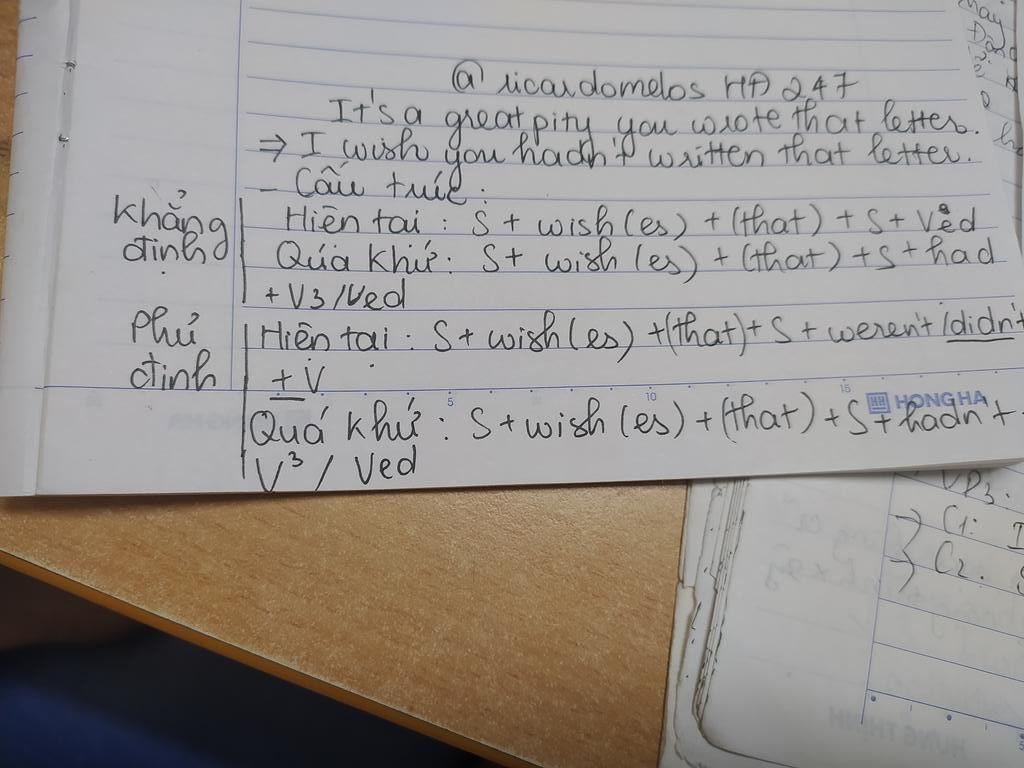 @ ricardomelos HĐ 247
It's a great pity you wrote that letter.
⇒ I wish you hadn't written that letter.
- Cấu trúc:
Khẳng định
Hiện tai : S + wish(es) + (that) + S + Ved
Quá khứ: S + wish (es) + (that) + S + had
+ V3 /Ved
Phủ định
Hiện tai : S + wish(es) + (that) + S + weren't /didn't
+ V
Quá khứ : S + wish (es) + (that) + S + hadn't +
V3 / Ved
5
10
15
HONG HA
VP3.
C1:
C2.